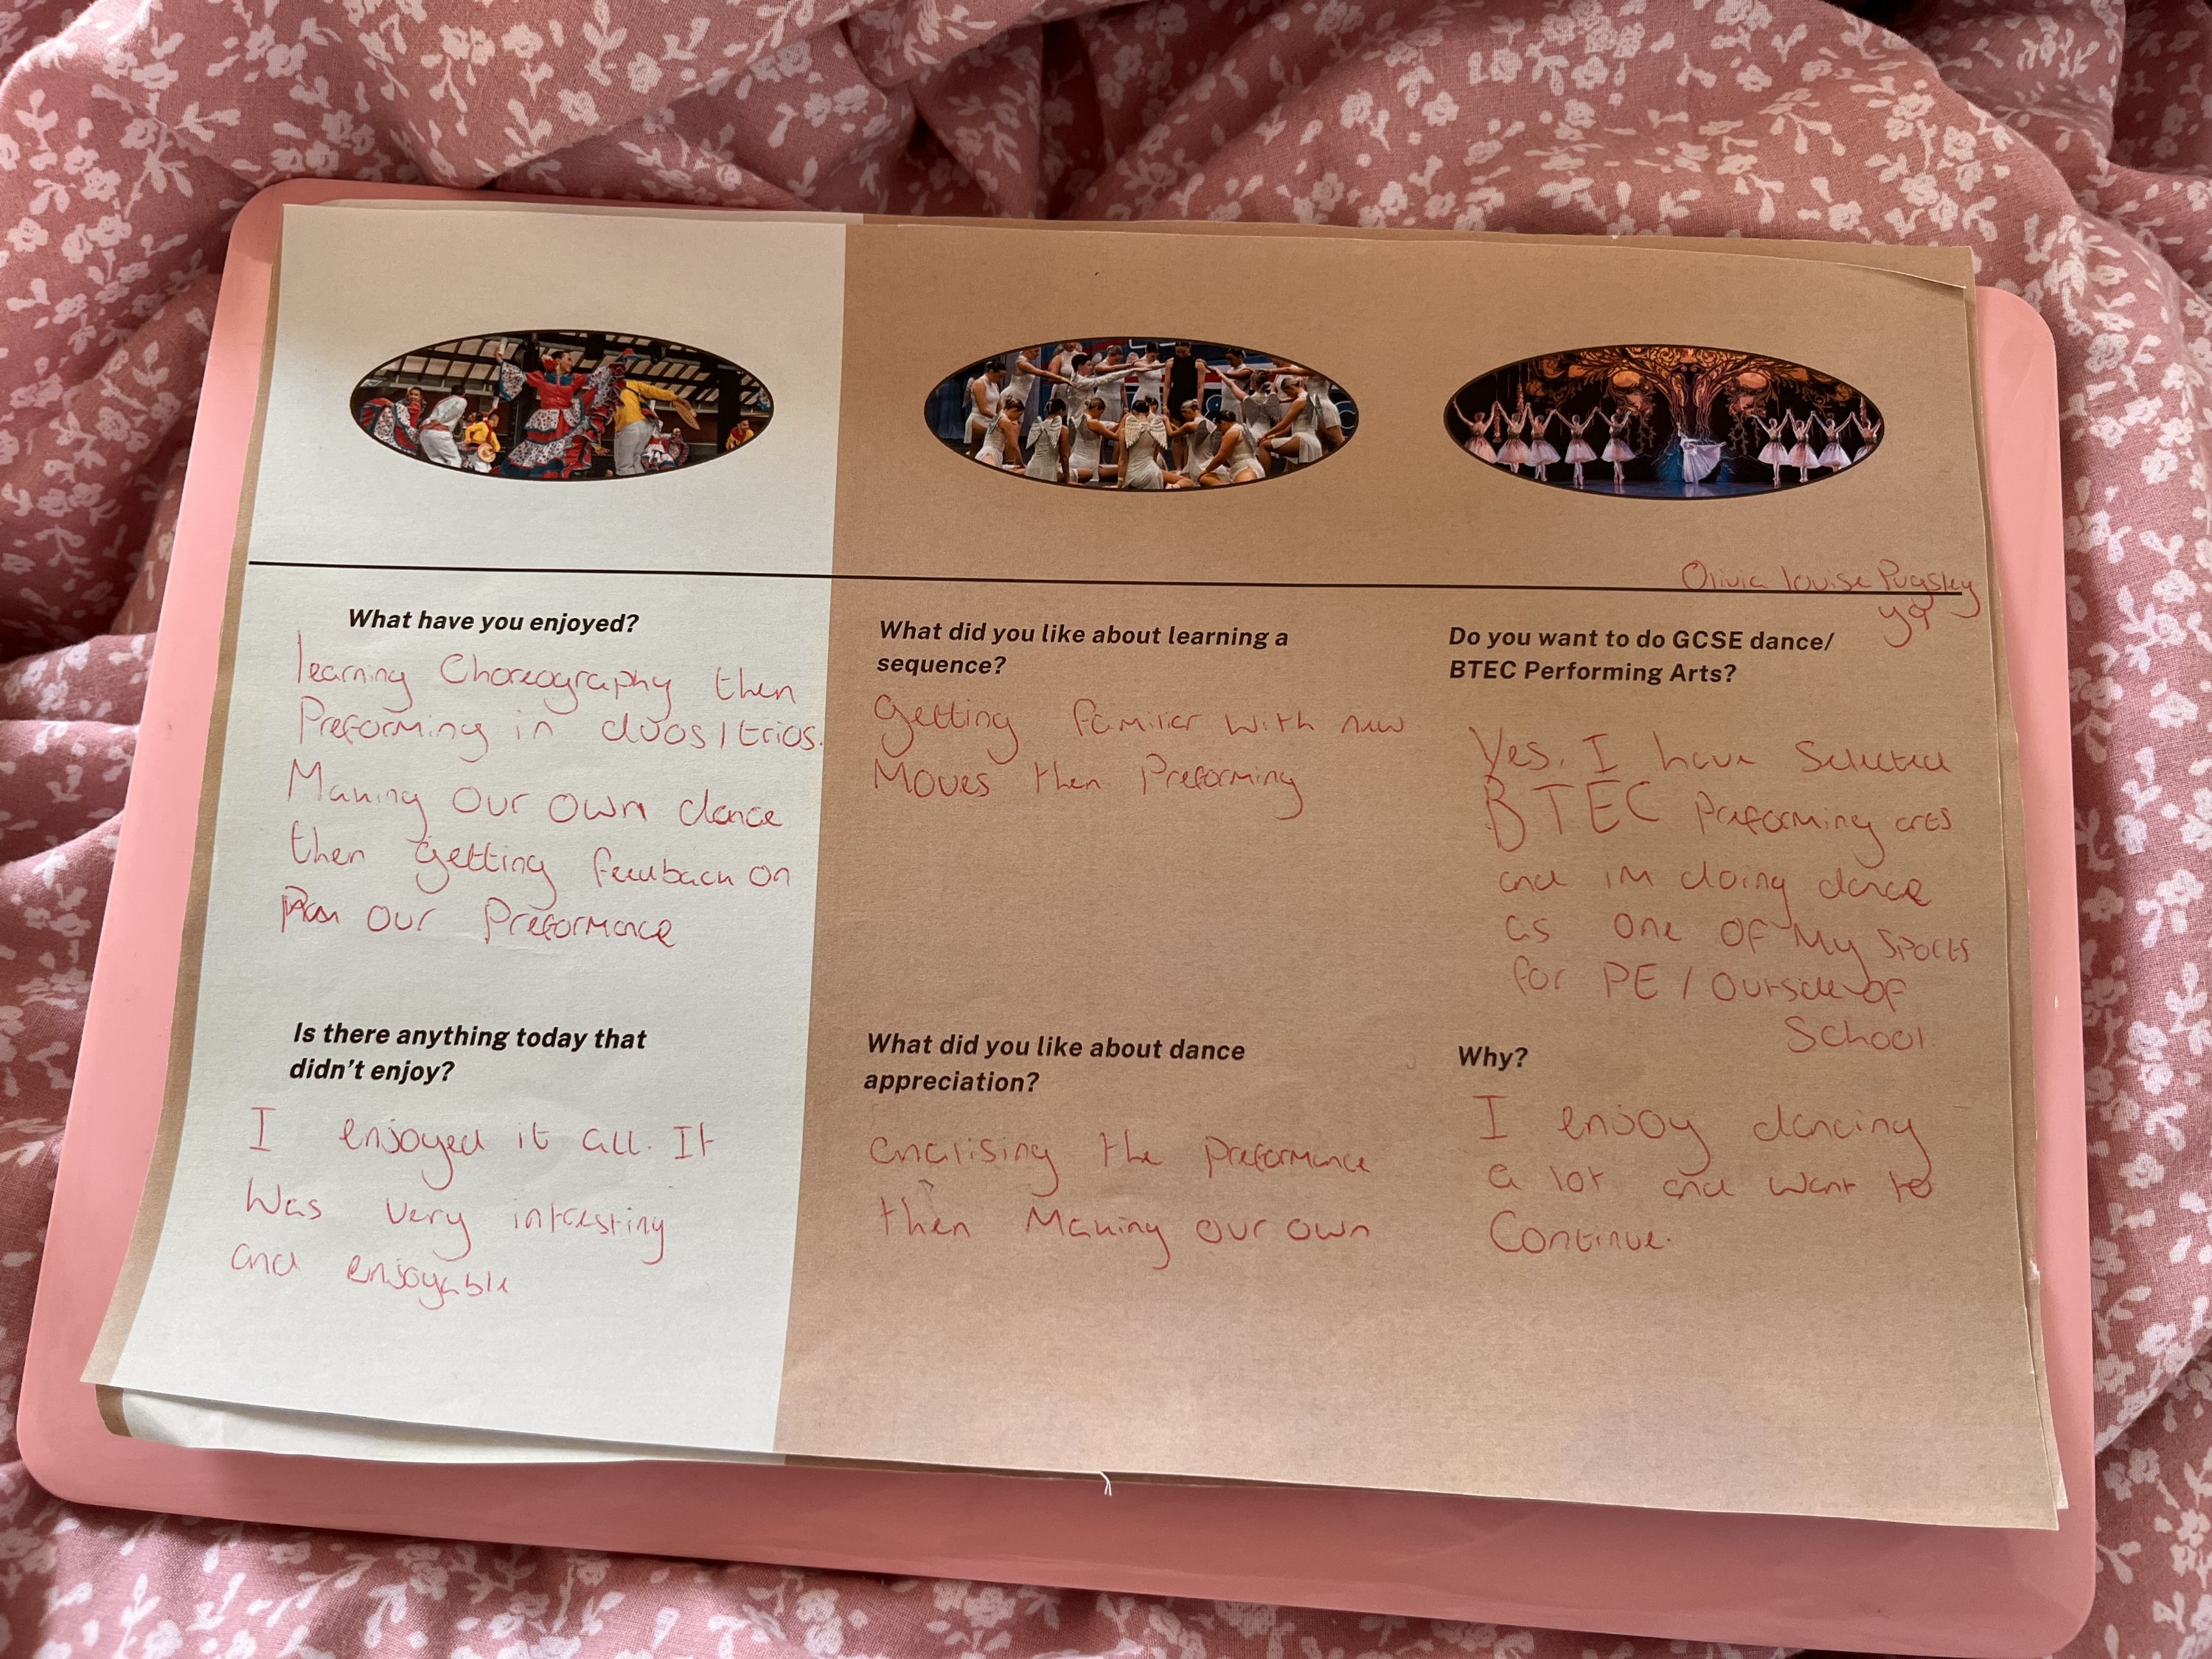 Olivia louise Pugsley
y9
What have you enjoyed?
learning Choreography then
Preforming in duos/trios.
Making our own dance
then getting feedback on
our Preformance
Is there anything today that
didn't enjoy?
I enjoyed it all. It
was very intresting
and enjoyable
What did you like about learning a
sequence?
Getting familiar with new
Moves then Preforming
What did you like about dance
appreciation?
analising the preformance
then Making our own
Do you want to do GCSE dance/
BTEC Performing Arts?
Yes. I have Selected
BTEC Preforming arts
and im doing dance
as one of My sports
for PE / Outside of
School.
Why?
I enjoy dancing
a lot and want to
Continue.